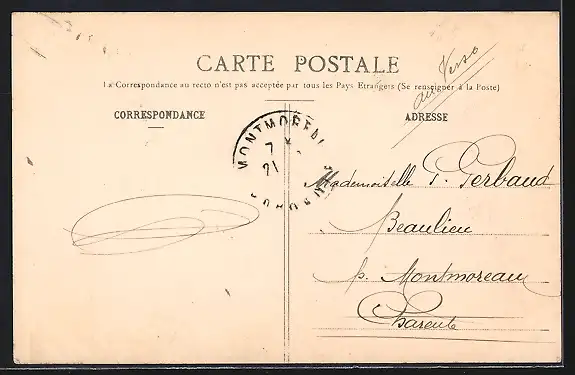 CARTE POSTALE
La Correspondance au recto n'est pas acceptée par tous les Pays Etrangers (Se renseigner à la Poste)
au Verso
CORRESPONDANCE
ADRESSE
MONTMOREAU
7
21
Mademoiselle G. Gerbaud
Beaulieu
p. Montmoreau
Charente